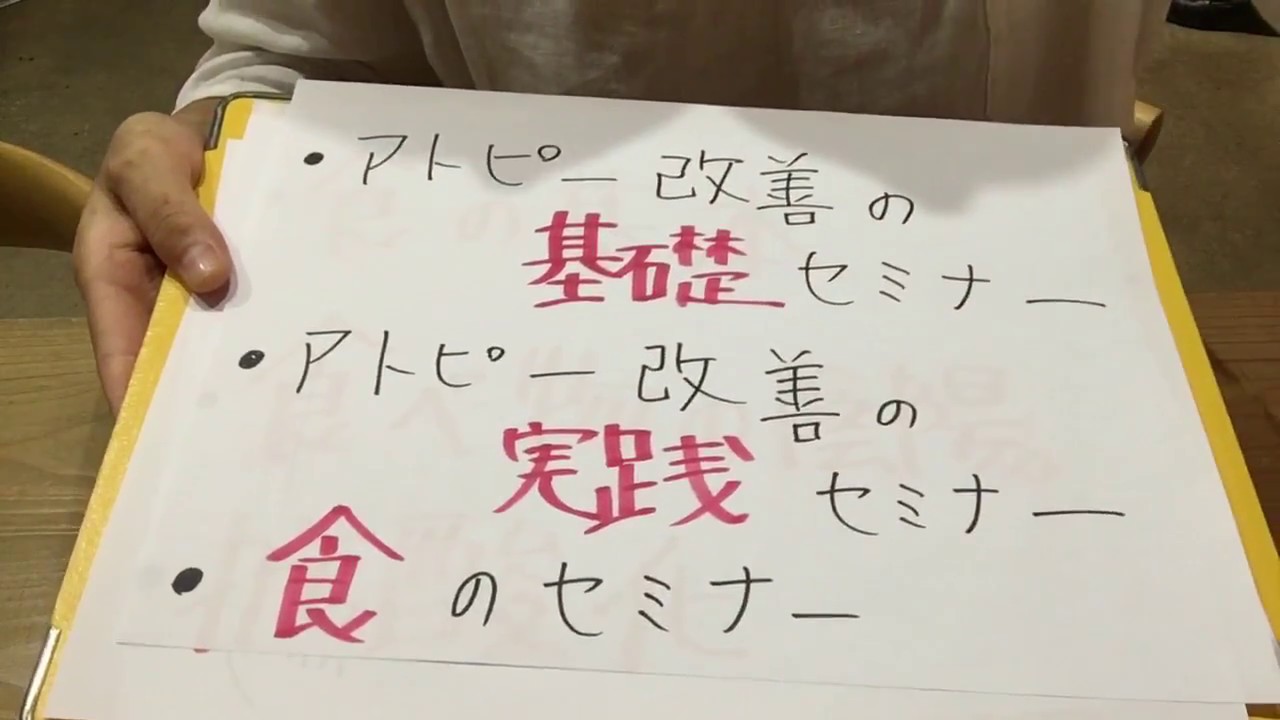 ・アトピー改善の
基礎セミナー
・アトピー改善の
実践セミナー
・食のセミナー